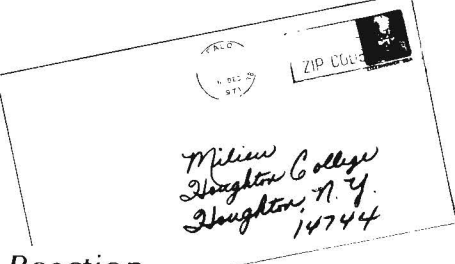 ALO
DEC
971
ZIP CODE
Milieu
Houghton College
Houghton, N. Y.
14744
Reaction